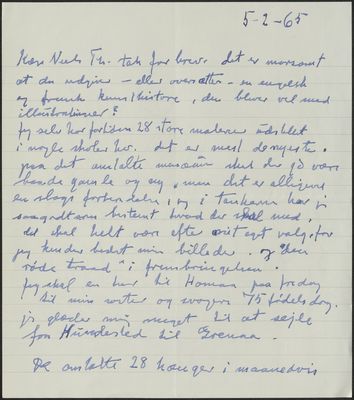 5-2-65
Kære Niels Th. tak for brev. det er morsomt
at du udgiver – eller oversætter – en engelsk
og fransk kunsthistorie, den bliver vel med
illustrationer?
jeg selv har for tiden 28 store malerier udstillet
i nogle skoler her. det er mest de nyeste.
paa det omtalte museum skal der jo være
baade gamle og ny, men det er alligevel
en slags forbindelse, og i tankerne har jeg
saagodtsom bestemt hvad der skal med,
det skal helt være efter mit eget valg, for
jeg kender bedst mine billeder. og den
røde traad i frembringelsen.
Jeg skal en tur til paa fredag
til min søster og svogers 75 fødelsdag.
jeg glæder mig meget til at sejle
fra Hundested til Grenaa.
De omtalte 28 hænger i maanedsvis